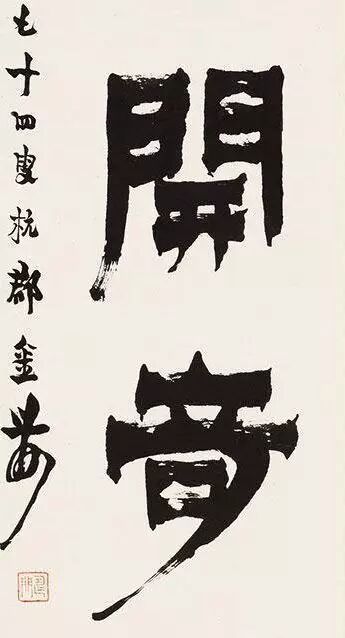 開
七十四叟杭郡金農